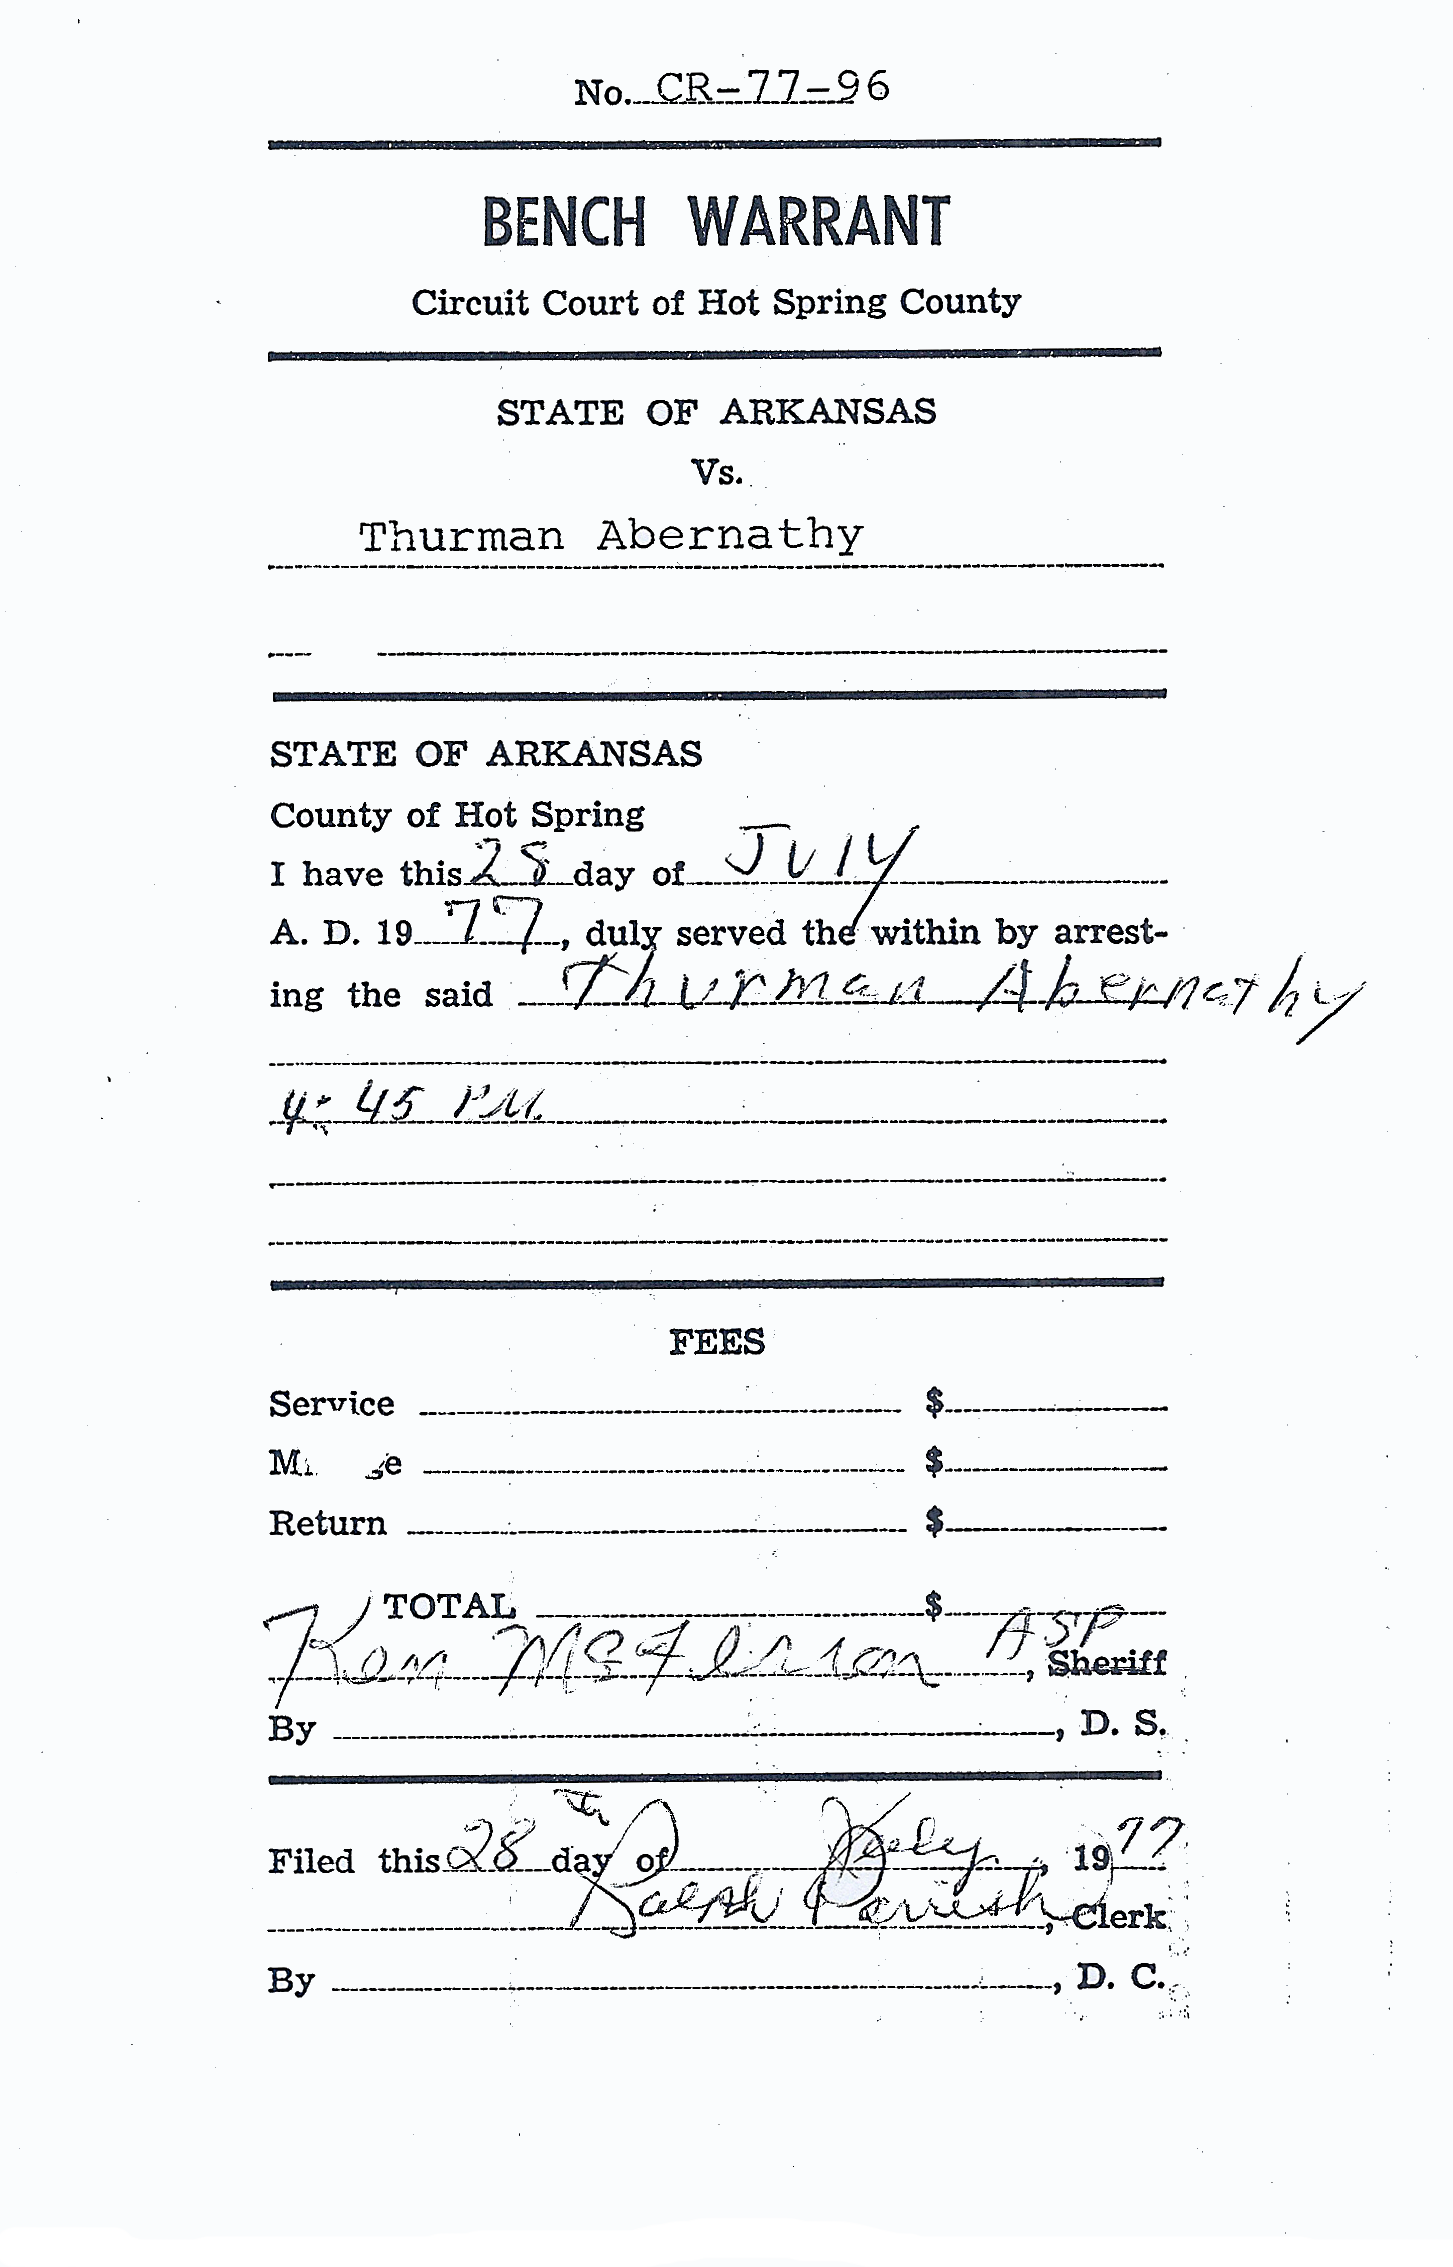 No. CR-77-96
BENCH WARRANT
Circuit Court of Hot Spring County
STATE OF ARKANSAS
Vs.
Thurman Abernathy
STATE OF ARKANSAS
County of Hot Spring
I have this 28 day of JUly
A. D. 19 77, duly served the within by arrest-
ing the said Thurman Abernathy
4:45 P.M.
FEES
Service $
$
Return $
TOTAL $
Ken McFerron ASP, Sheriff
By , D. S.
Filed this 28th day of July, 1977
Ralph Parrish, Clerk
By , D. C.